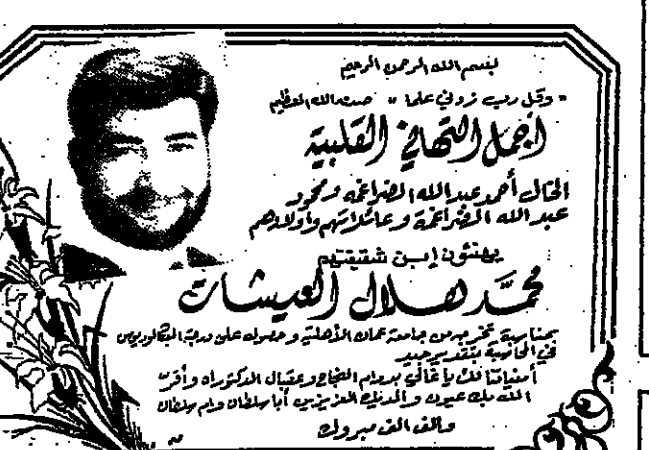 بسم الله الرحمن الرحيم
" وقل رب زدني علما " صدق الله العظيم
أجمل التهاني القلبية
الخال أحمد عبد الله الضراغمه ومحمود
عبد الله الضراغمة وعائلاتهم وأولادهم
يهنئون إبن شقيقتهم
محمّد هلال العيشات
بمناسبة تخرجه من جامعة عمان الأهلية وحصوله على درجة البكالوريوس
في المحاسبة بتقدير جيد
أمنياتنا لك يا غالي بدوام النجاح وعقبال الدكتوراه وأقر
الله بك عيون والديك العزيزين أبا سلطان وأم سلطان
والف الف مبروك